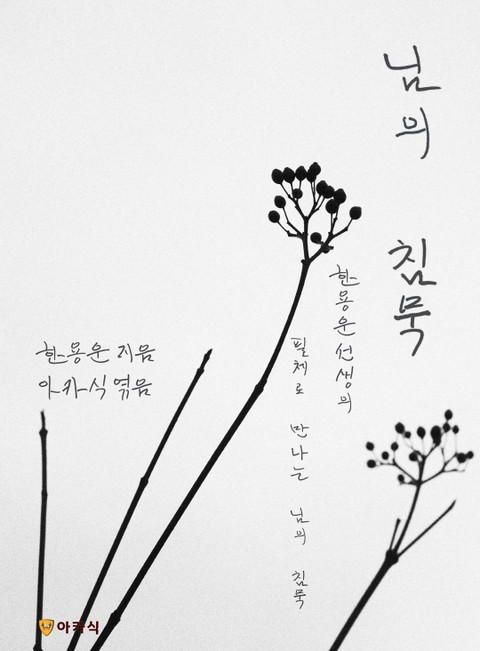 님의 침묵
한용운 선생의
필체로 만나는 님의 침묵
한용운 지음
아카식 엮음
아카식